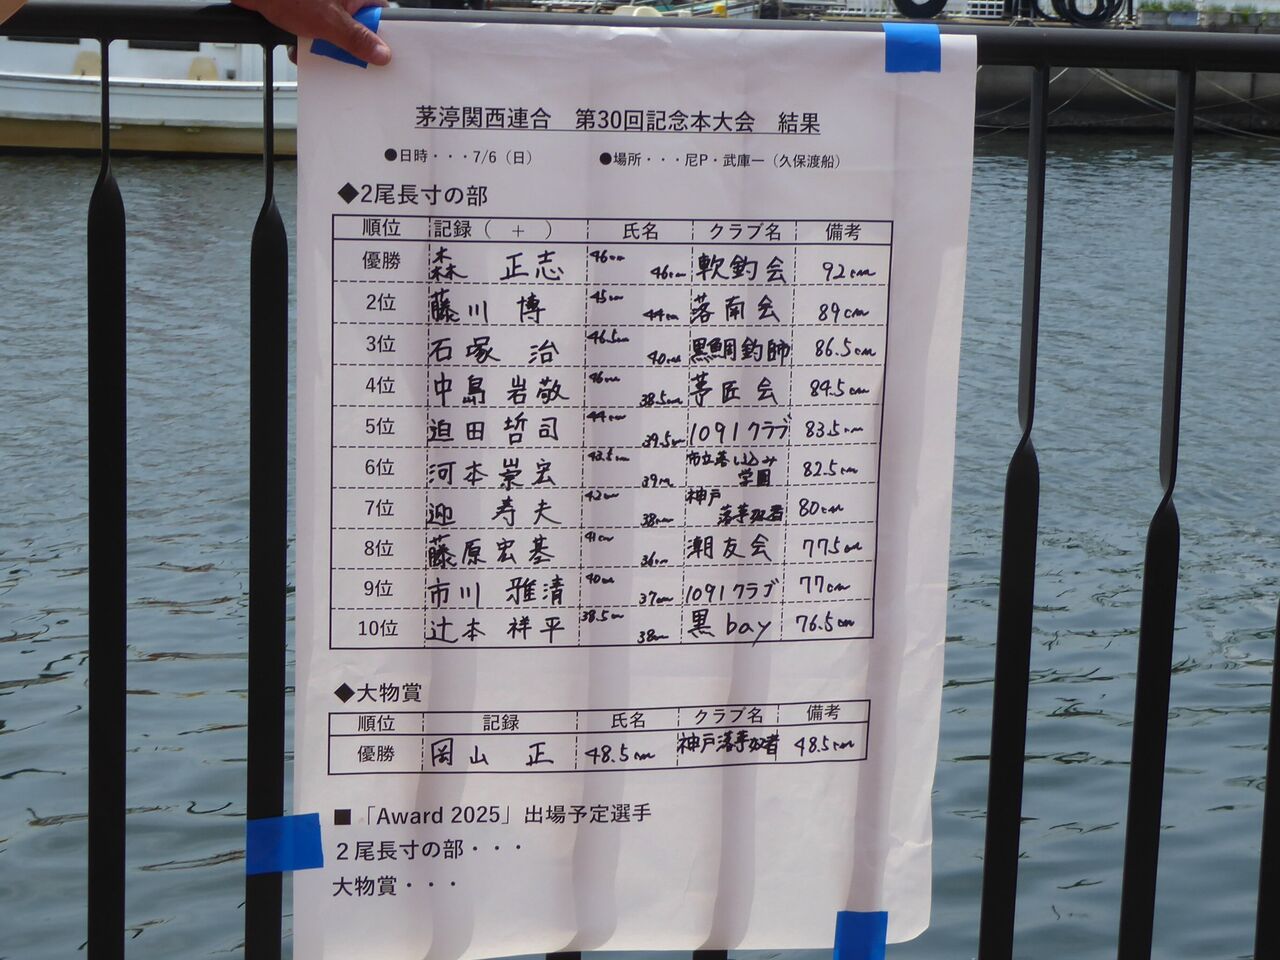 茅渟関西連合　第30回記念本大会　結果
●日時・・・7/6（日）　●場所・・・尼P・武庫一（久保渡船）
◆2尾長寸の部
順位 記録（　+　） 氏名 クラブ名 備考
優勝 森　正志 46cm 46cm 軟釣会 92cm
2位 藤川　博 45cm 44cm 落南会 89cm
3位 石塚　治 46.5cm 40cm 黒鯛釣師 86.5cm
4位 中島　岩敬 46cm 38.5cm 茅匠会 84.5cm
5位 迫田　哲司 44cm 39.5cm 1091クラブ 83.5cm
6位 河本崇宏 43.5cm 39cm 市立落し込み学園 82.5cm
7位 迎　寿夫 42cm 38cm 神戸落事 80cm
8位 藤原宏基 41cm 36cm 潮友会 77.5cm
9位 市川　雅清 40cm 37cm 1091クラブ 77cm
10位 辻本　祥平 38.5cm 38cm 黒bay 76.5cm
◆大物賞
順位 記録 氏名 クラブ名 備考
優勝 岡山　正 48.5cm 神戸落事 48.5cm
■「Award 2025」出場予定選手
２尾長寸の部・・・
大物賞・・・